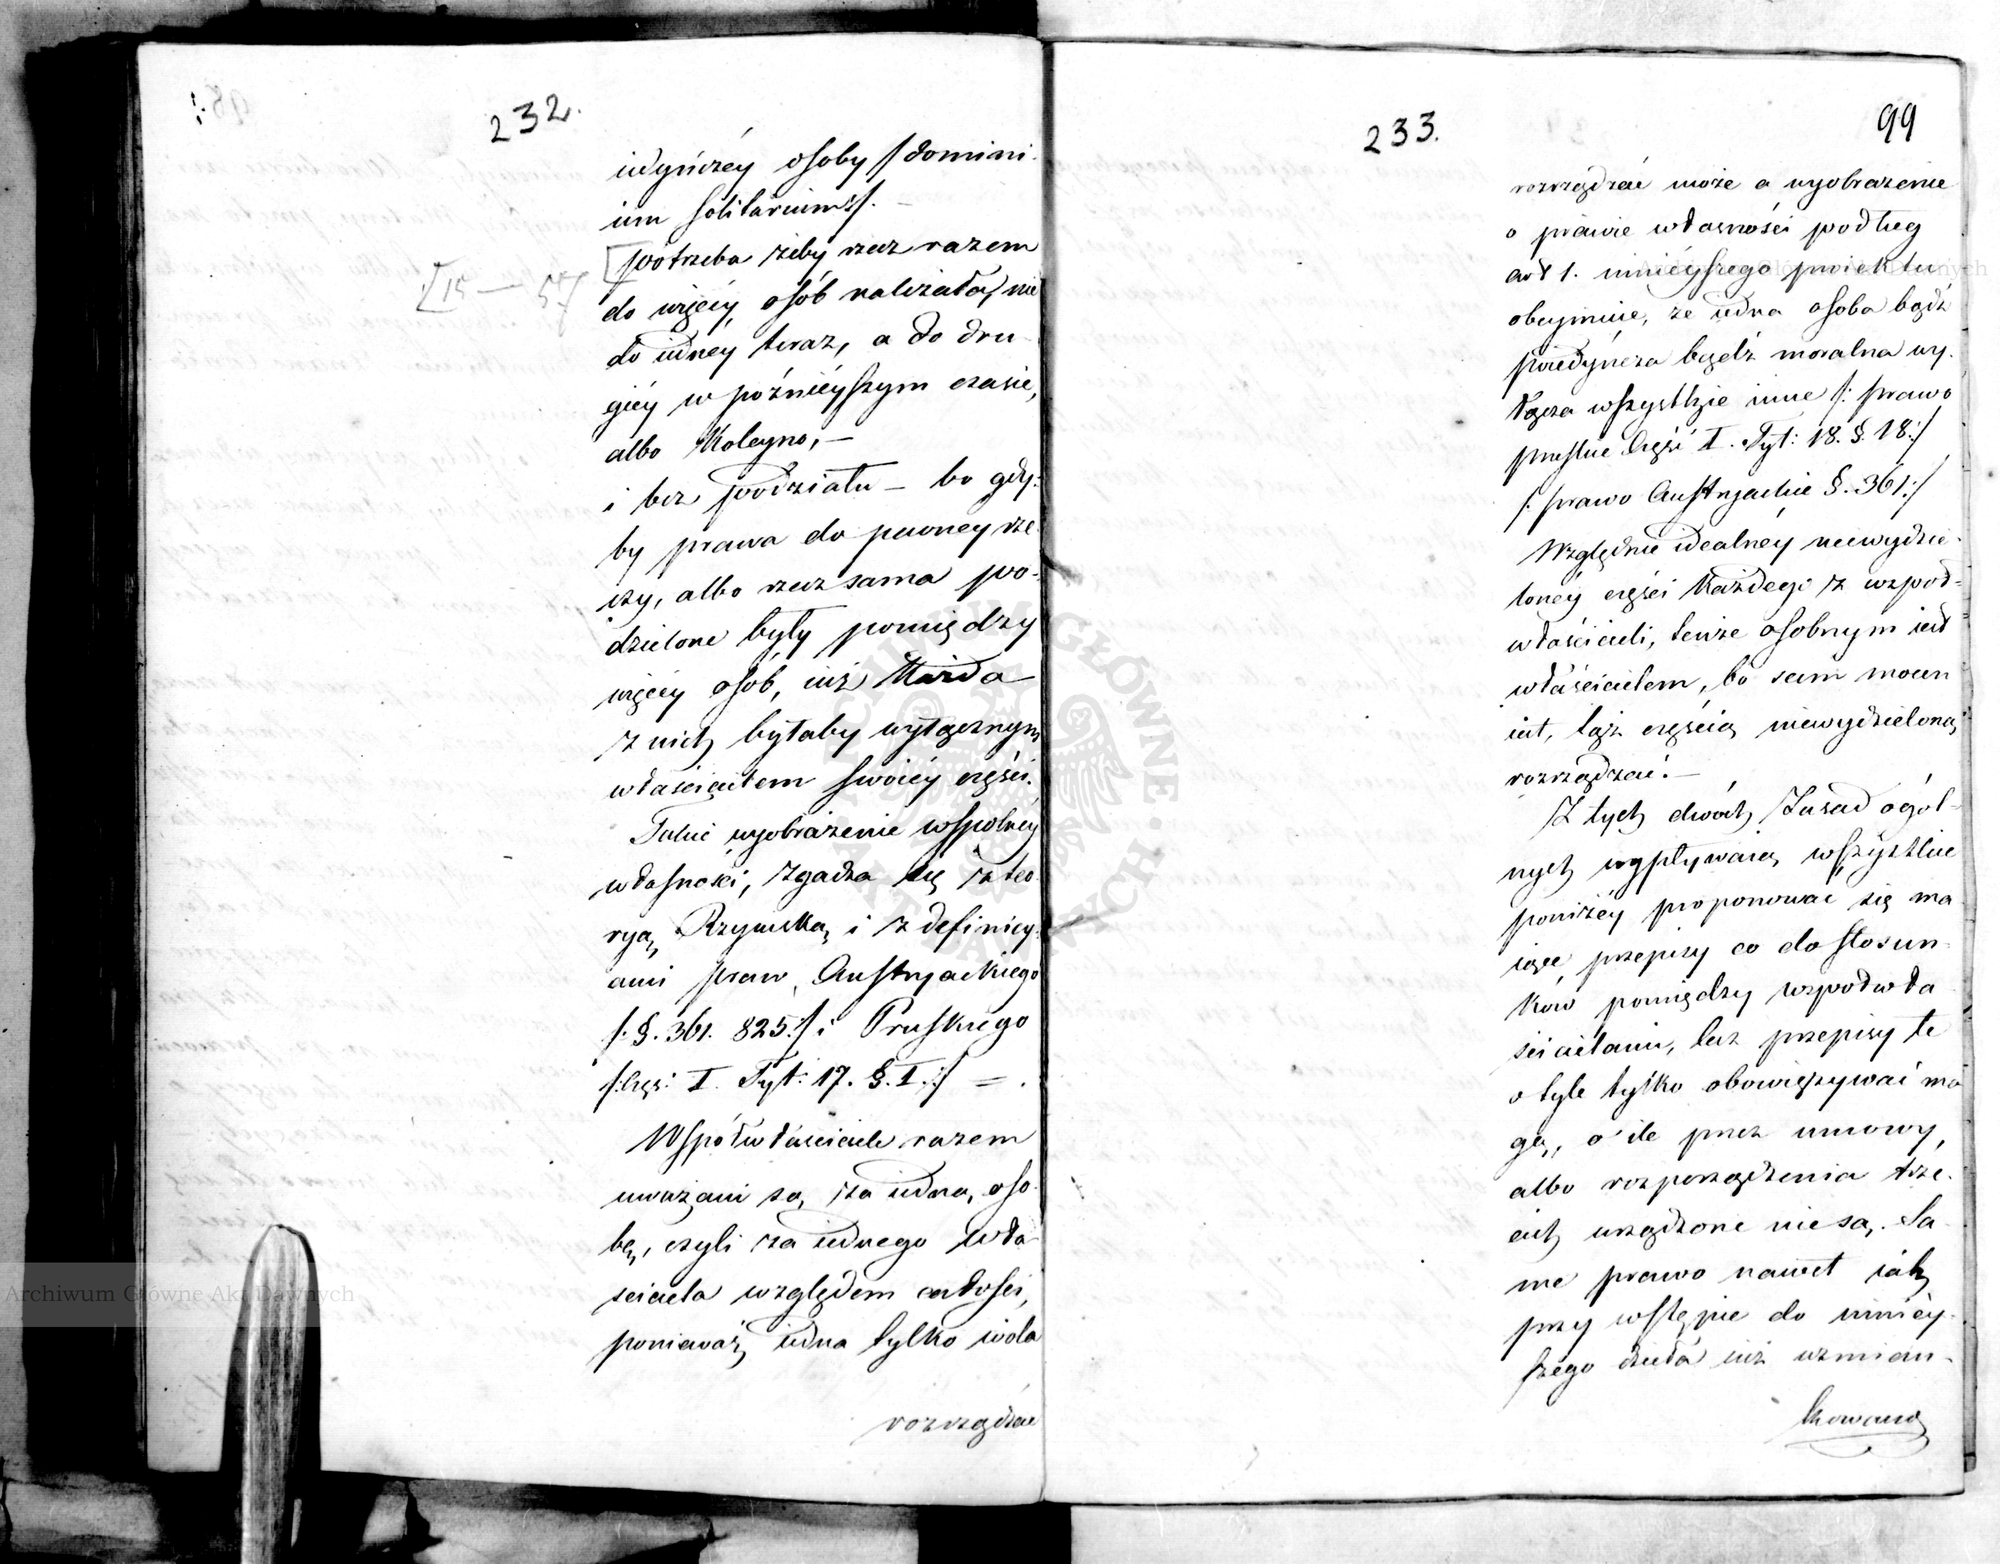 232.
iedyńczéy osoby /domini-
um solitarium:/. —
[potrzeba żeby rzecz razem
[15 — 57
do więcéy osób należała, nie
do iednéy teraz, a do dru-
giéy w poźnieyszym czasie,
albo koleyno, —
i bez podziału — bo gdy-
by prawa do pewney rze-
czy, albo rzecz sama po-
dzielone były pomiędzy
więcéy osób, iuż każda
z nich byłaby wyłącznym
właścicielem swoiéy części.
Takie wyobrażenie wspolnéy
własności, zgadza się z teo-
ryą Rzymską i z definicy-
ami praw Austryackiego
/: §. 361. 825:/ i Pruskiego
/: Częś: I. Tyt: 17. §. I.:/ = .
Współwłaściciele razem
uważani są, za iedną oso-
bę, czyli za iednego wła-
sciciela względem całości,
ponieważ iedna tylko wola
rozrządzać
233.
99
rozrządzać może a wyobrażenie
o prawie własności podług
art 1. ninieyszego proiektu
obeymuie, że iedna osoba bądź
poiedyncza bądź moralna wy-
łącza wszystkie inne /: prawo
pruskie Część I. Tyt: 18. §. 18:/
/: prawo Austryackie §. 361:/
Względnie idealnéy niewydzie-
lonéy części każdego z wspoł-
właścicieli, tenże osobnym iest
właścicielem, bo sam mocen
iest, tąż częścią niewydzieloną
rozrządzać. —
Z tych dwóch Zasad ogól-
nych wypływaią wszystkie
poniżéy proponować się ma-
iące przepisy co do stosun-
ków pomiędzy wspołwła-
ścicielami, lecz przepisy te
o tyle tylko obowięzywać mo-
gą, o ile przez umowy,
albo rozporządzenia trze-
cich urządzone nie są. Sa-
me prawo nawet iak
przy wstępie do ninéy-
szego działa iuż wzmian-
kowano